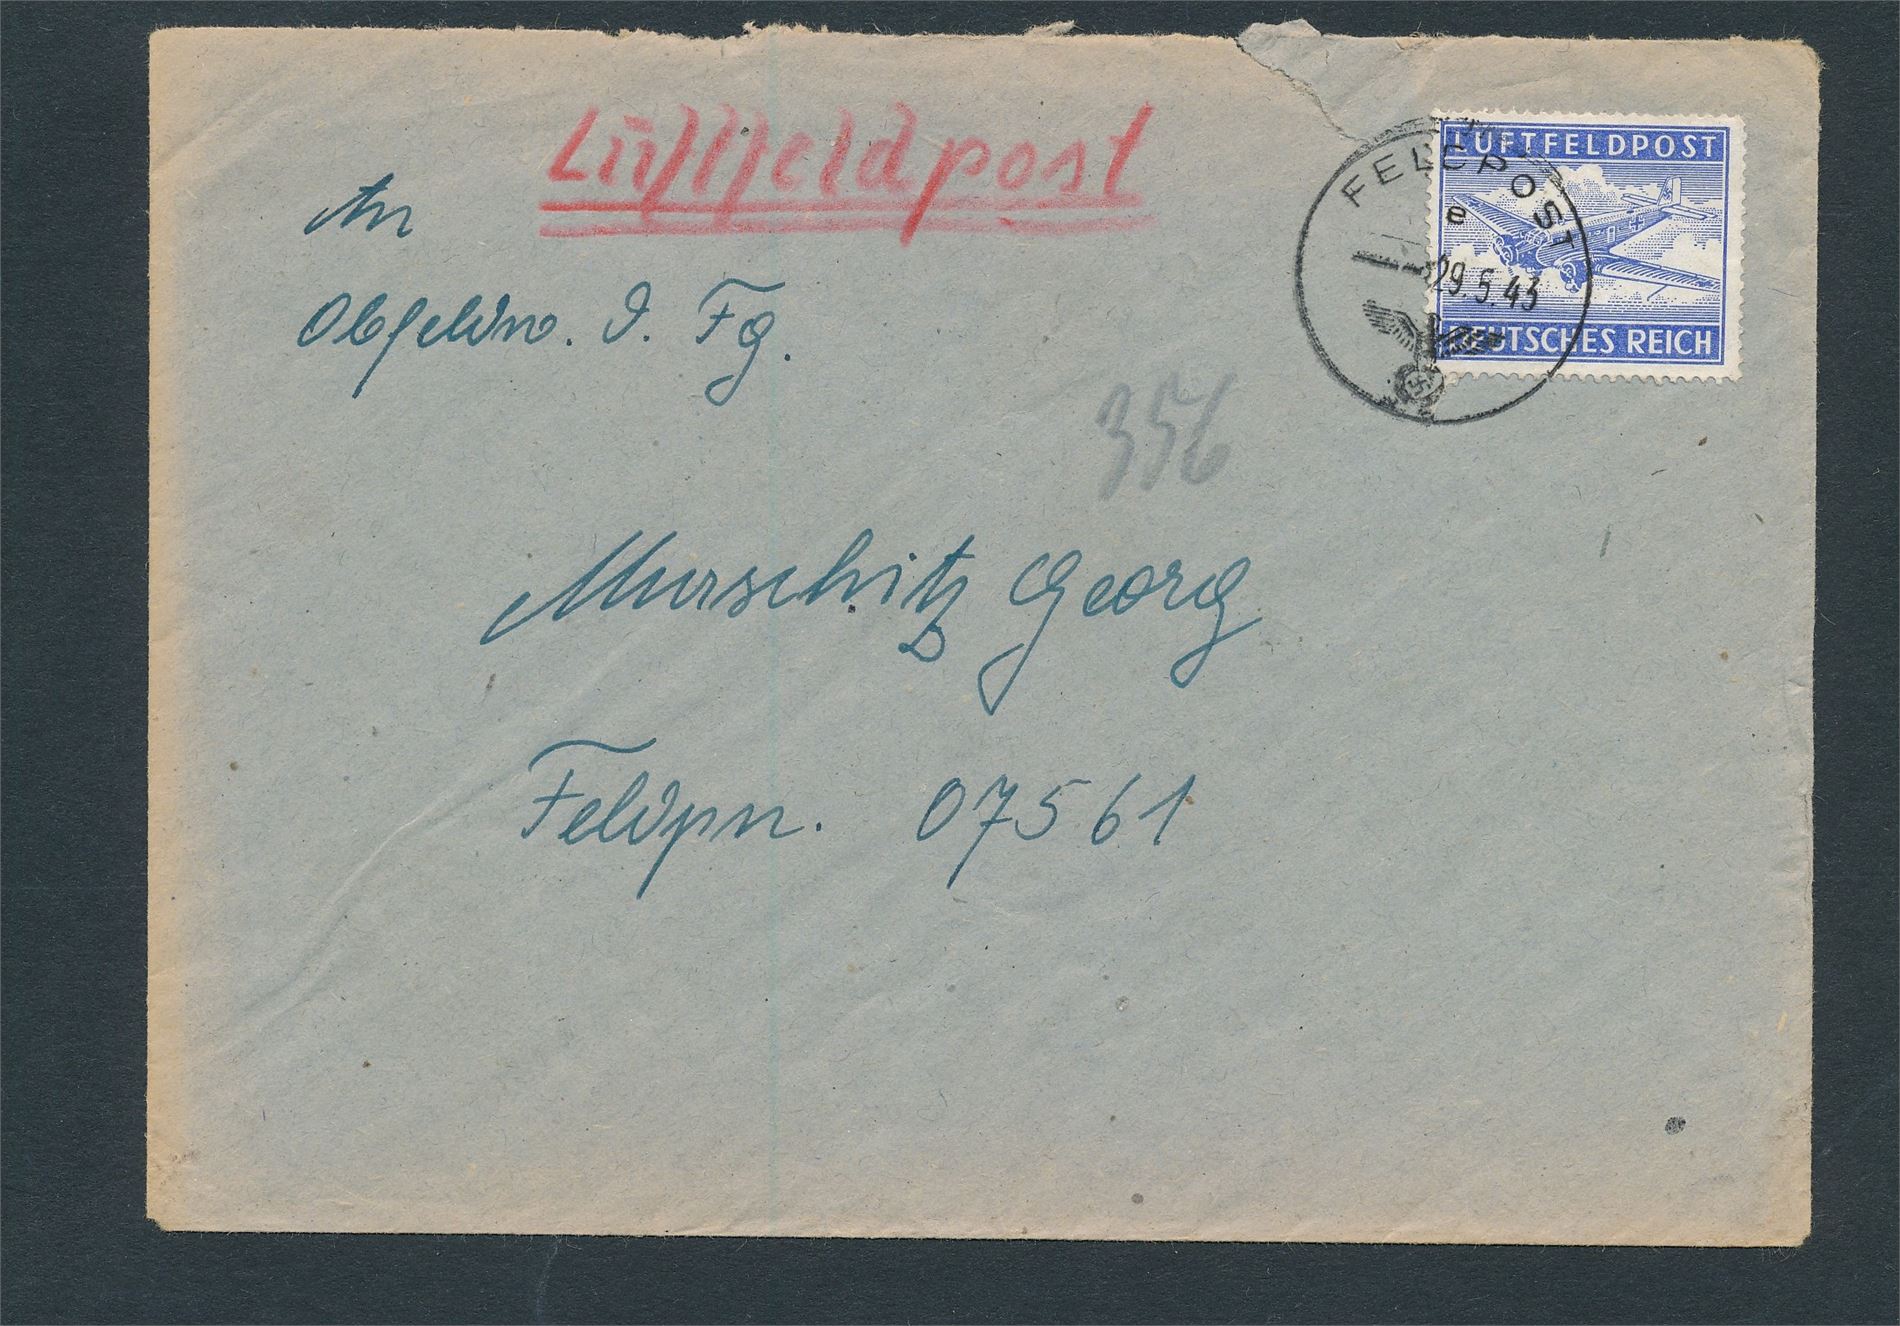 Luftfeldpost
LUFTFELDPOST
FELDPOST
e
29.5.43
DEUTSCHES REICH
An
Obfeldw. d. Fg.
356
Murschitz Georg
Feldpn. 07561